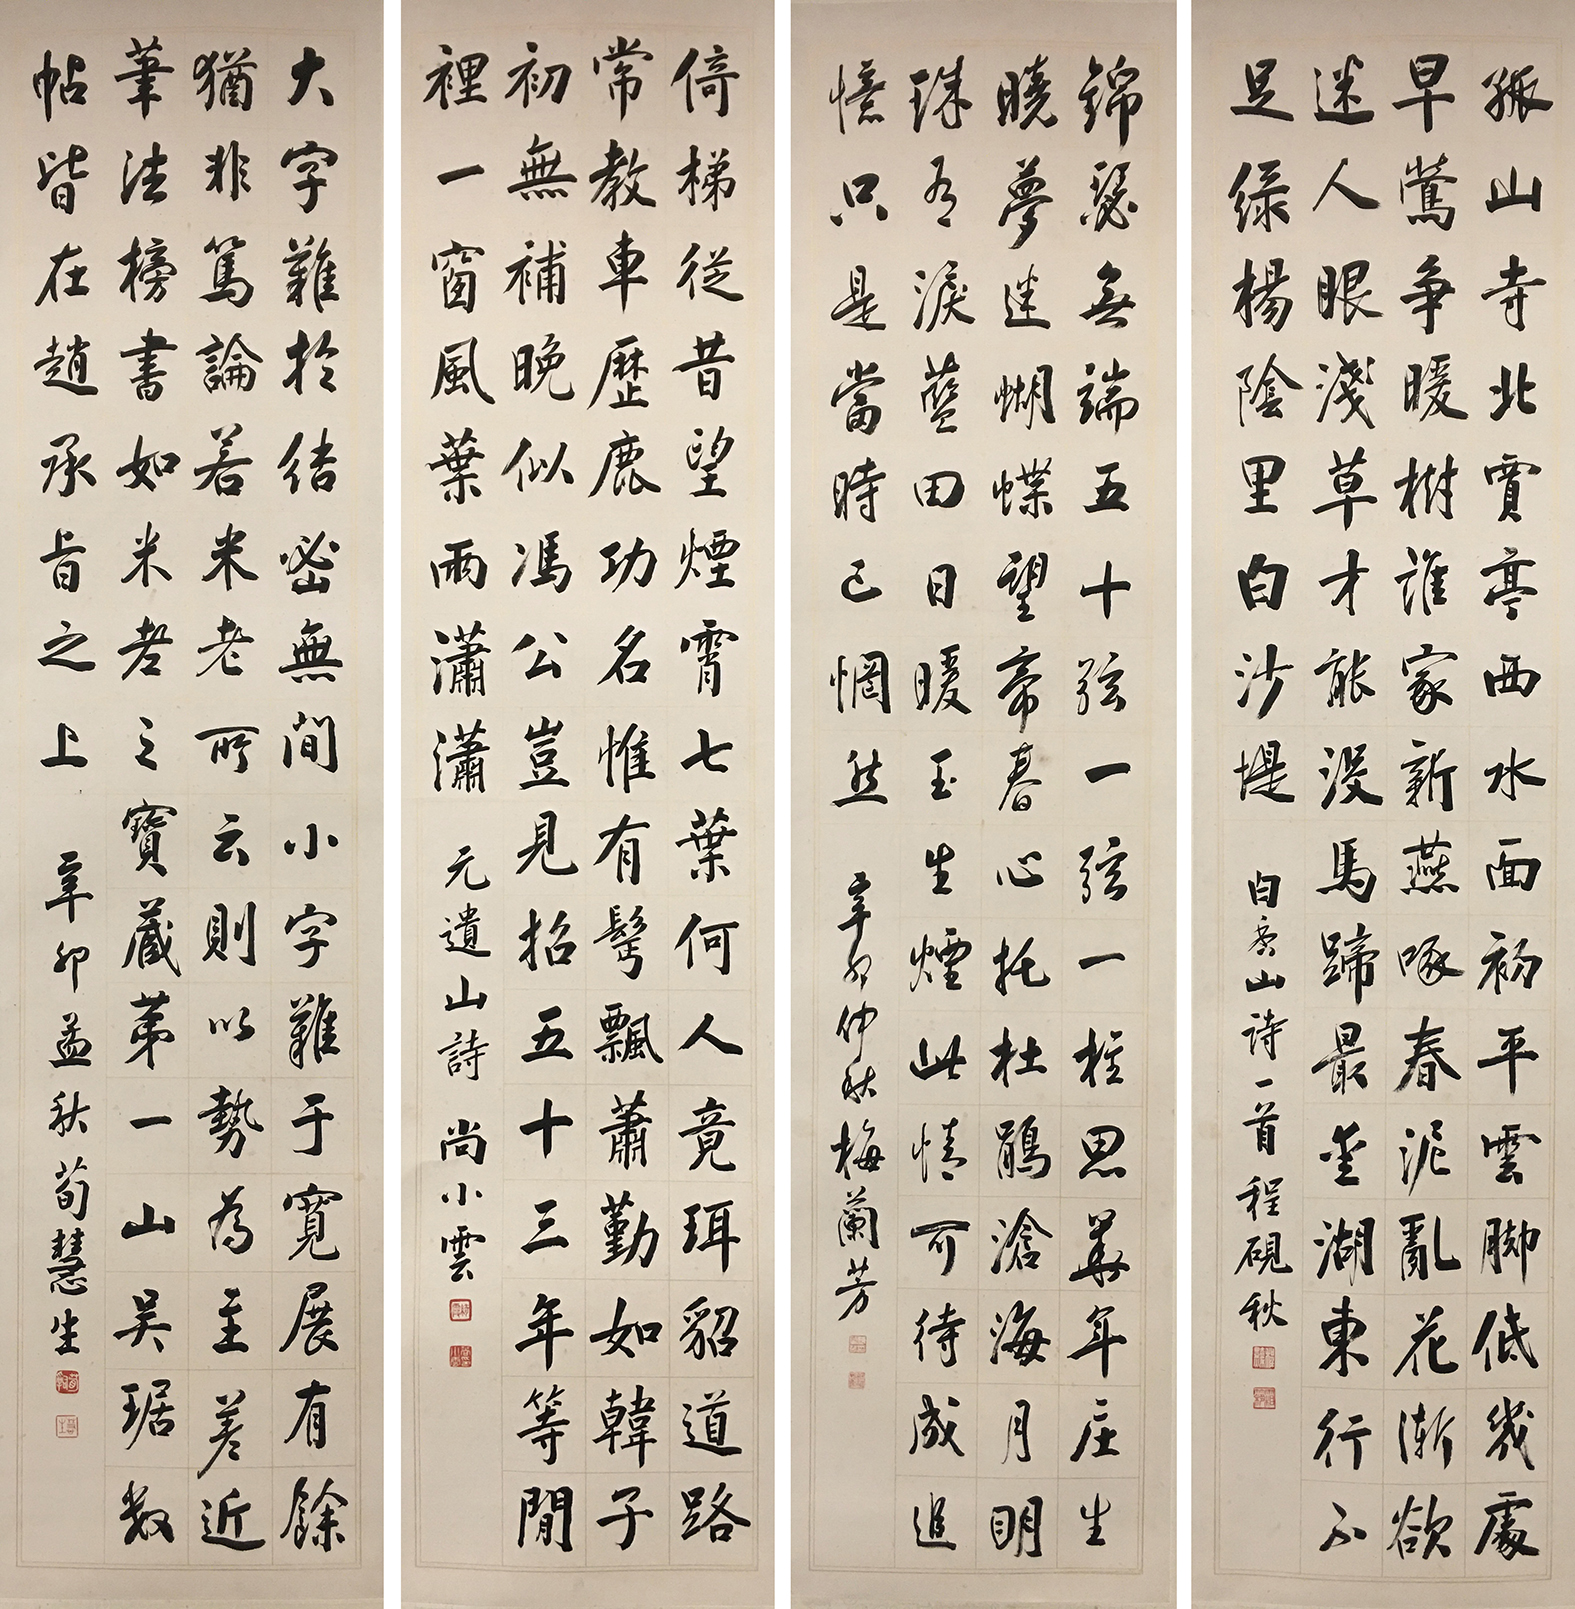 孤山寺北賈亭西水面初平雲脚低幾處
早鶯争暖樹誰家新燕啄春泥亂花漸欲
迷人眼淺草才能没馬蹄最愛湖東行不
足绿楊陰里白沙堤
白香山诗一首程硯秋
錦瑟無端五十弦一弦一柱思華年庄生
曉夢迷蝴蝶望帝春心托杜鵑滄海月明
珠有淚藍田日暖玉生煙此情可待成追
憶只是當時已惘然
辛卯仲秋梅蘭芳
倚梯從昔望煙霄七葉何人竟珥貂道路
常教車歷鹿功名惟有髩飄蕭勤如韓子
初無補晚似馮公豈見招五十三年等閒
裡一窗風葉雨瀟瀟
元遺山詩 尚小雲
大字難於結密無間小字難于寬展有餘
猶非篤論若米老所云則以勢為主差近
筆法榜書如米老之寶藏第一山吴琚数
帖皆在趙承旨之上
辛卯孟秋荀慧生